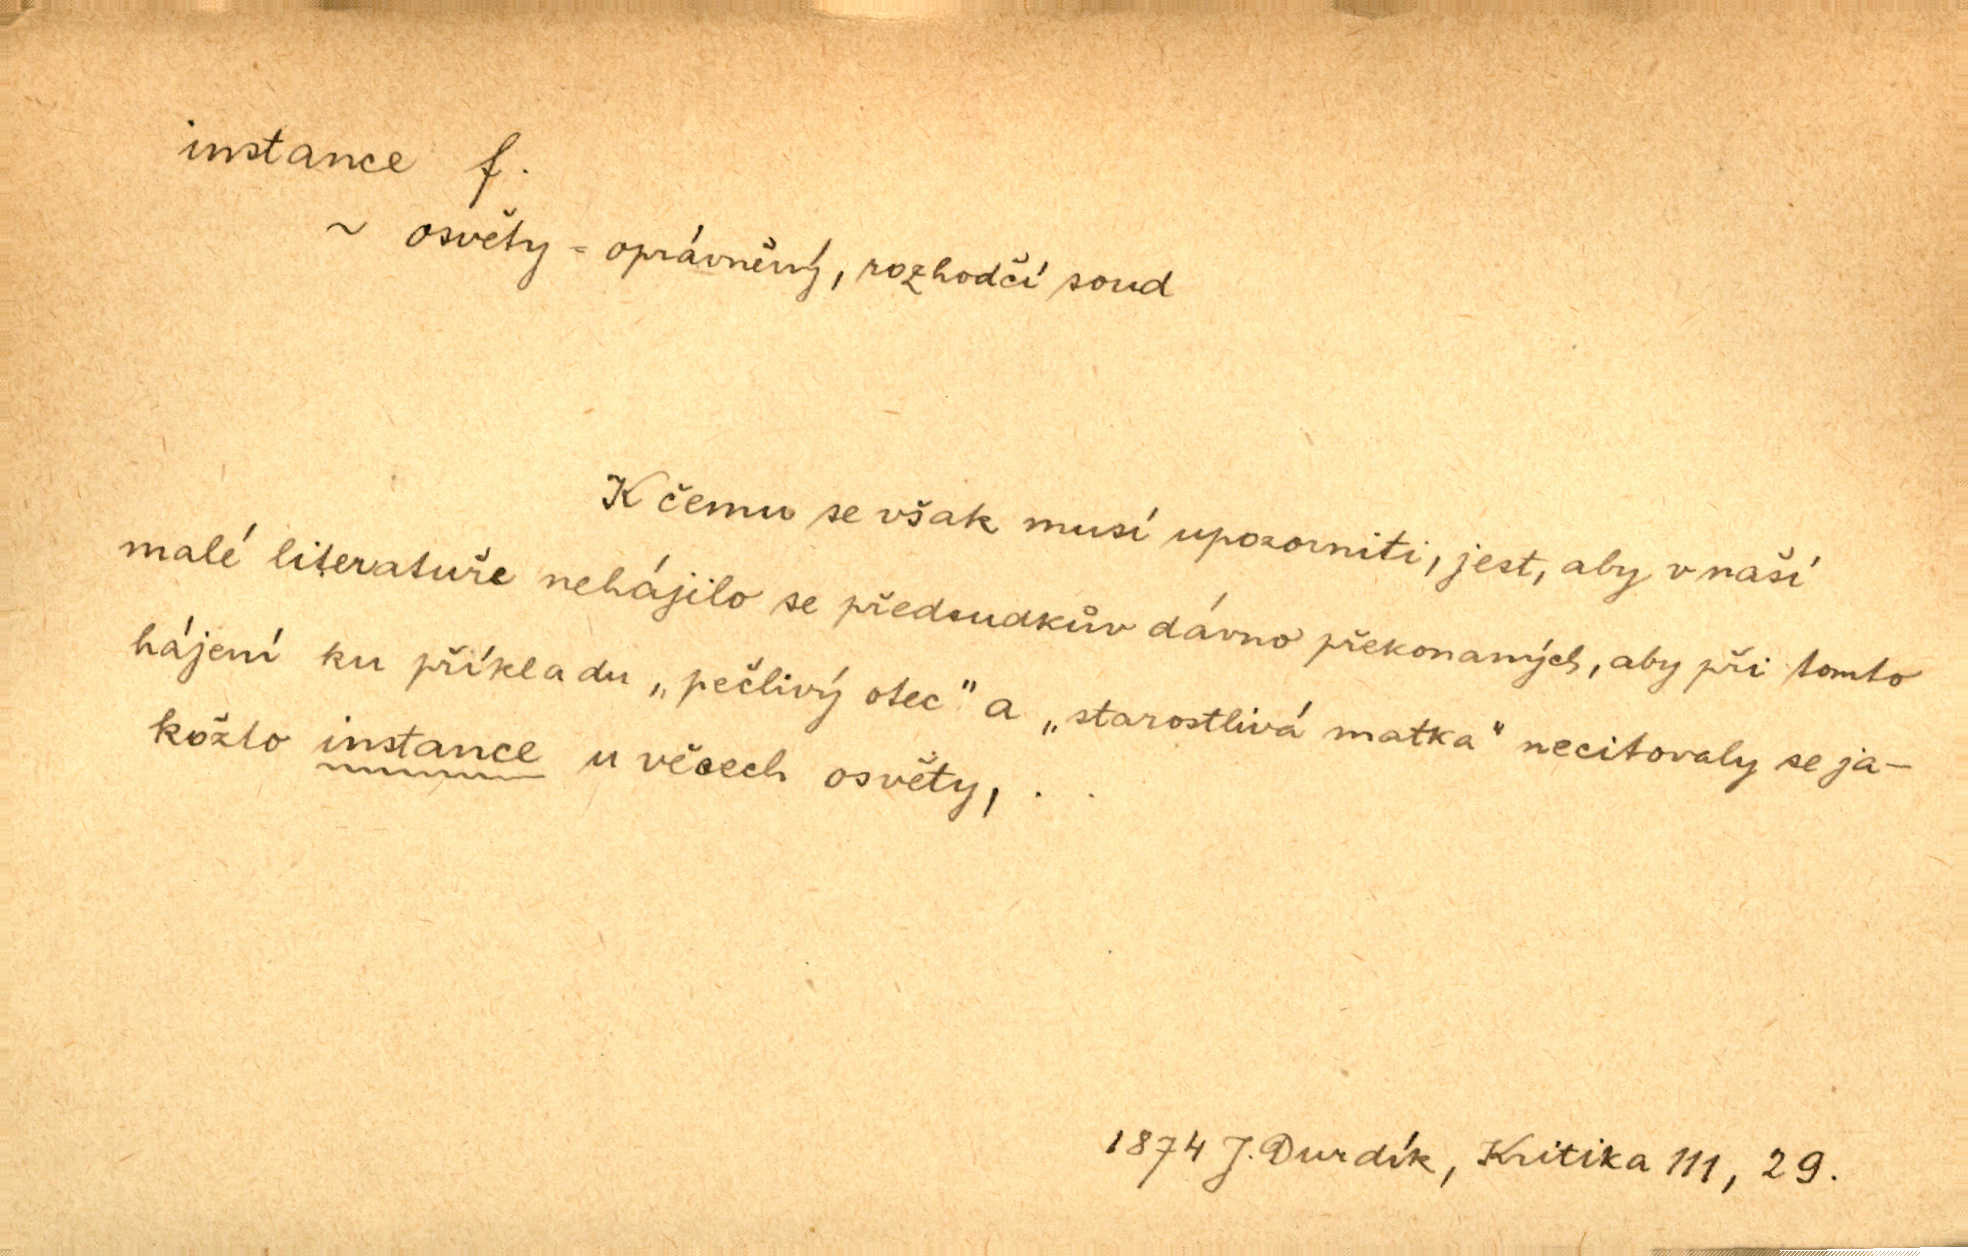 instance f.
~ osvěty = oprávněný, rozhodčí soud
K čemu se však musí upozorniti, jest, aby v naší
malé literatuře nehájilo se předsudkův dávno překonaných, aby při tomto
hájení ku příkladu „pečlivý otec" a „starostlivá matka" necitovaly se ja-
kožto instance u věcech osvěty, . .
1874 J. Durdík, Kritika III, 29.